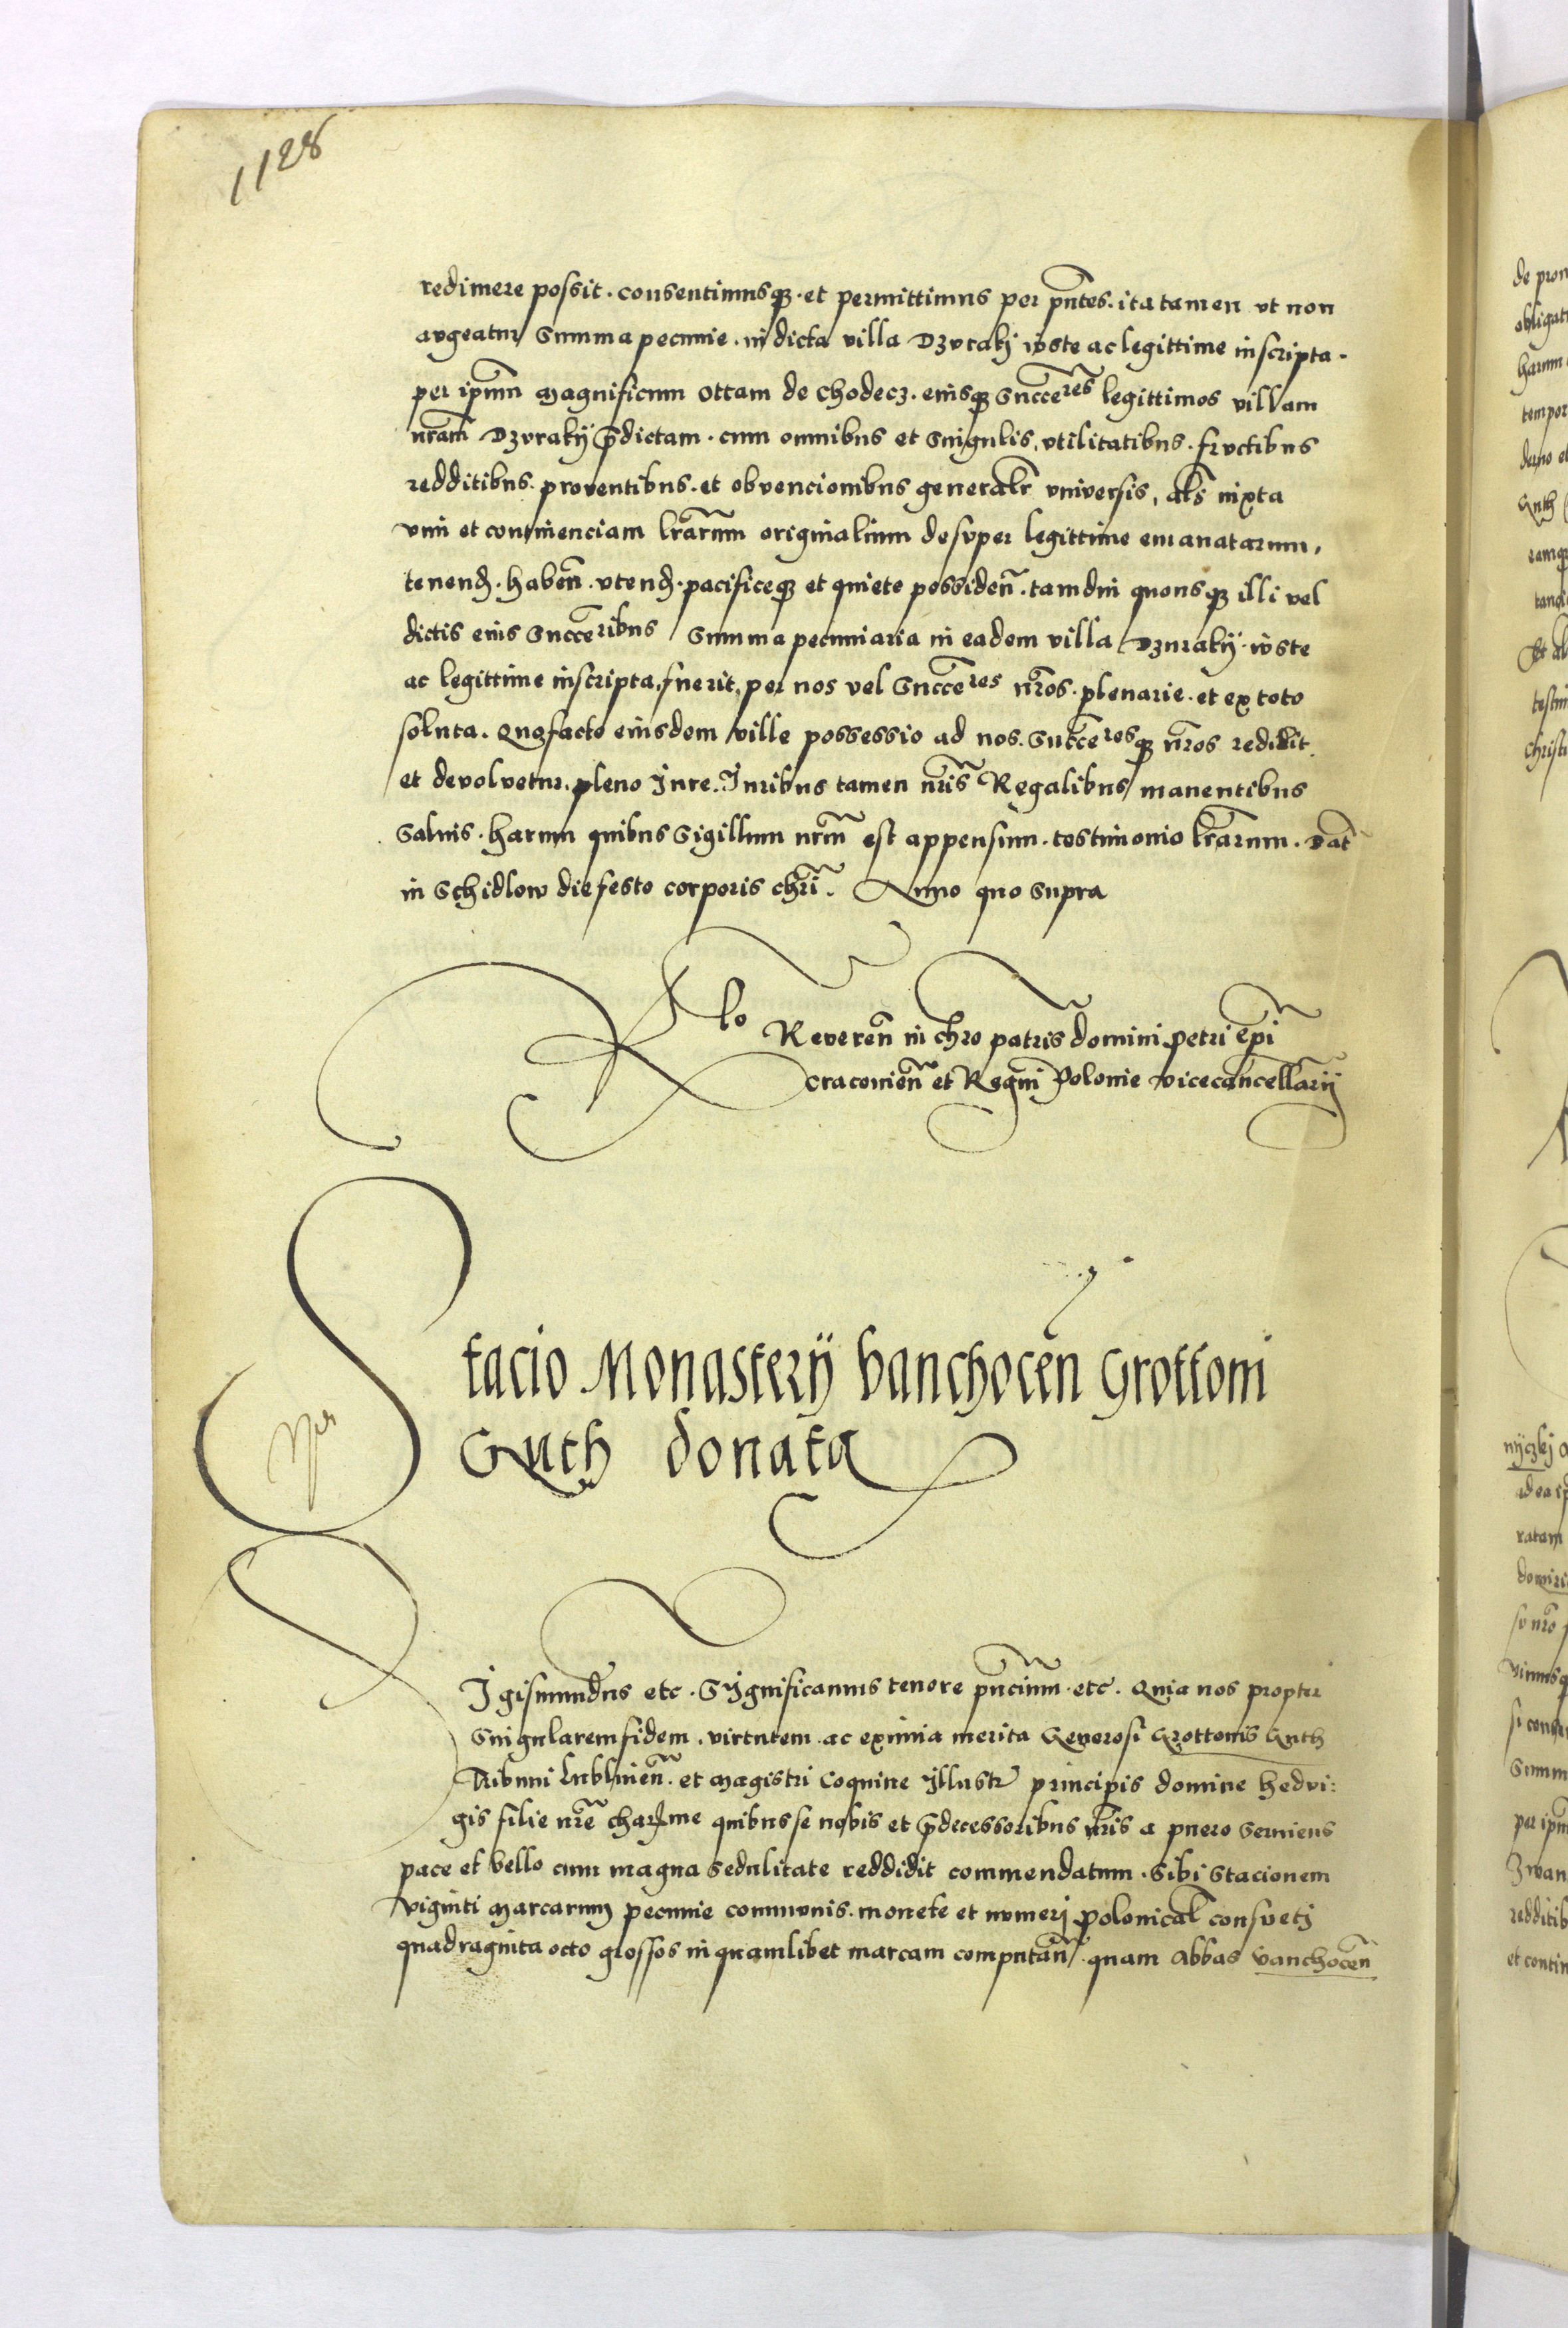 1128
redimere possit. consentimusq3. et permittimus per pñtes. ita tamen ut non
augeatur summa pecunie. in dicta villa Dzvrakÿ iuste ac legittime inscripta.
per ipm̃ Magnificum Ottam de Chodecz. eiusq3 succẽres legittimos villam
nrãm Dzvrakÿ p̃dictam. cum omnibus et singulis, vtilitatibus. fructibus
redditibus. proventibus. et obvencionibus generalr̃ vniversis, als̃ iuxta
vim et continenciam lr̃arum originalium desuper legittime emanatarum,
tenend. habeñ. utend. pacificeq3 et quiete possideñ. tamdiu quousq3 illi vel
dictis eius succẽribus summa pecuniaria in eadem villa Dzurakÿ. iuste
ac legittime inscripta, fuerit, per nos vel succẽres nr̃os. plenarie. et ex toto
soluta. Quo facto eiusdem ville possessio ad nos. succẽresq3 nr̃os redibit
et devolvetur. pleno Jure. Juribus tamen nr̃is Regalibus manentibus
salvis. harum quibus Sigillum nrm̃ est appensum. testimonio lr̃arum. Dat̃
in Schidlow die festo corporis chrĩ. Anno quo supra
Rlo Revereñ in chro patris domini petri Ep̃i
cracovieñ et Regni Polonie vicecancellarii
Stacio Monasterÿ vanchoceñ Grottoni
Guth donata
Sigismundus etc. Significamus tenore pñcium. etc. Quia nos propter
singularem fidem. virtutem. ac eximia merita Generosi Grottonis Guth
Tribuni Lublineñ. et Magistri Coquine Illustr̃ principis domine Hedvi:
gis filie nr̃e charme quibus se nobis et p̃decessoribus nr̃is a puero serviens
pace et bello cum magna sedulitate reddidit commendatum. Sibi Stacionem
viginti Marcarum pecunie communis. monete et numeri polonical̃ consueti
quadraginta octo grossos in quamlibet marcam computañ. quam Abbas vanchoceñ